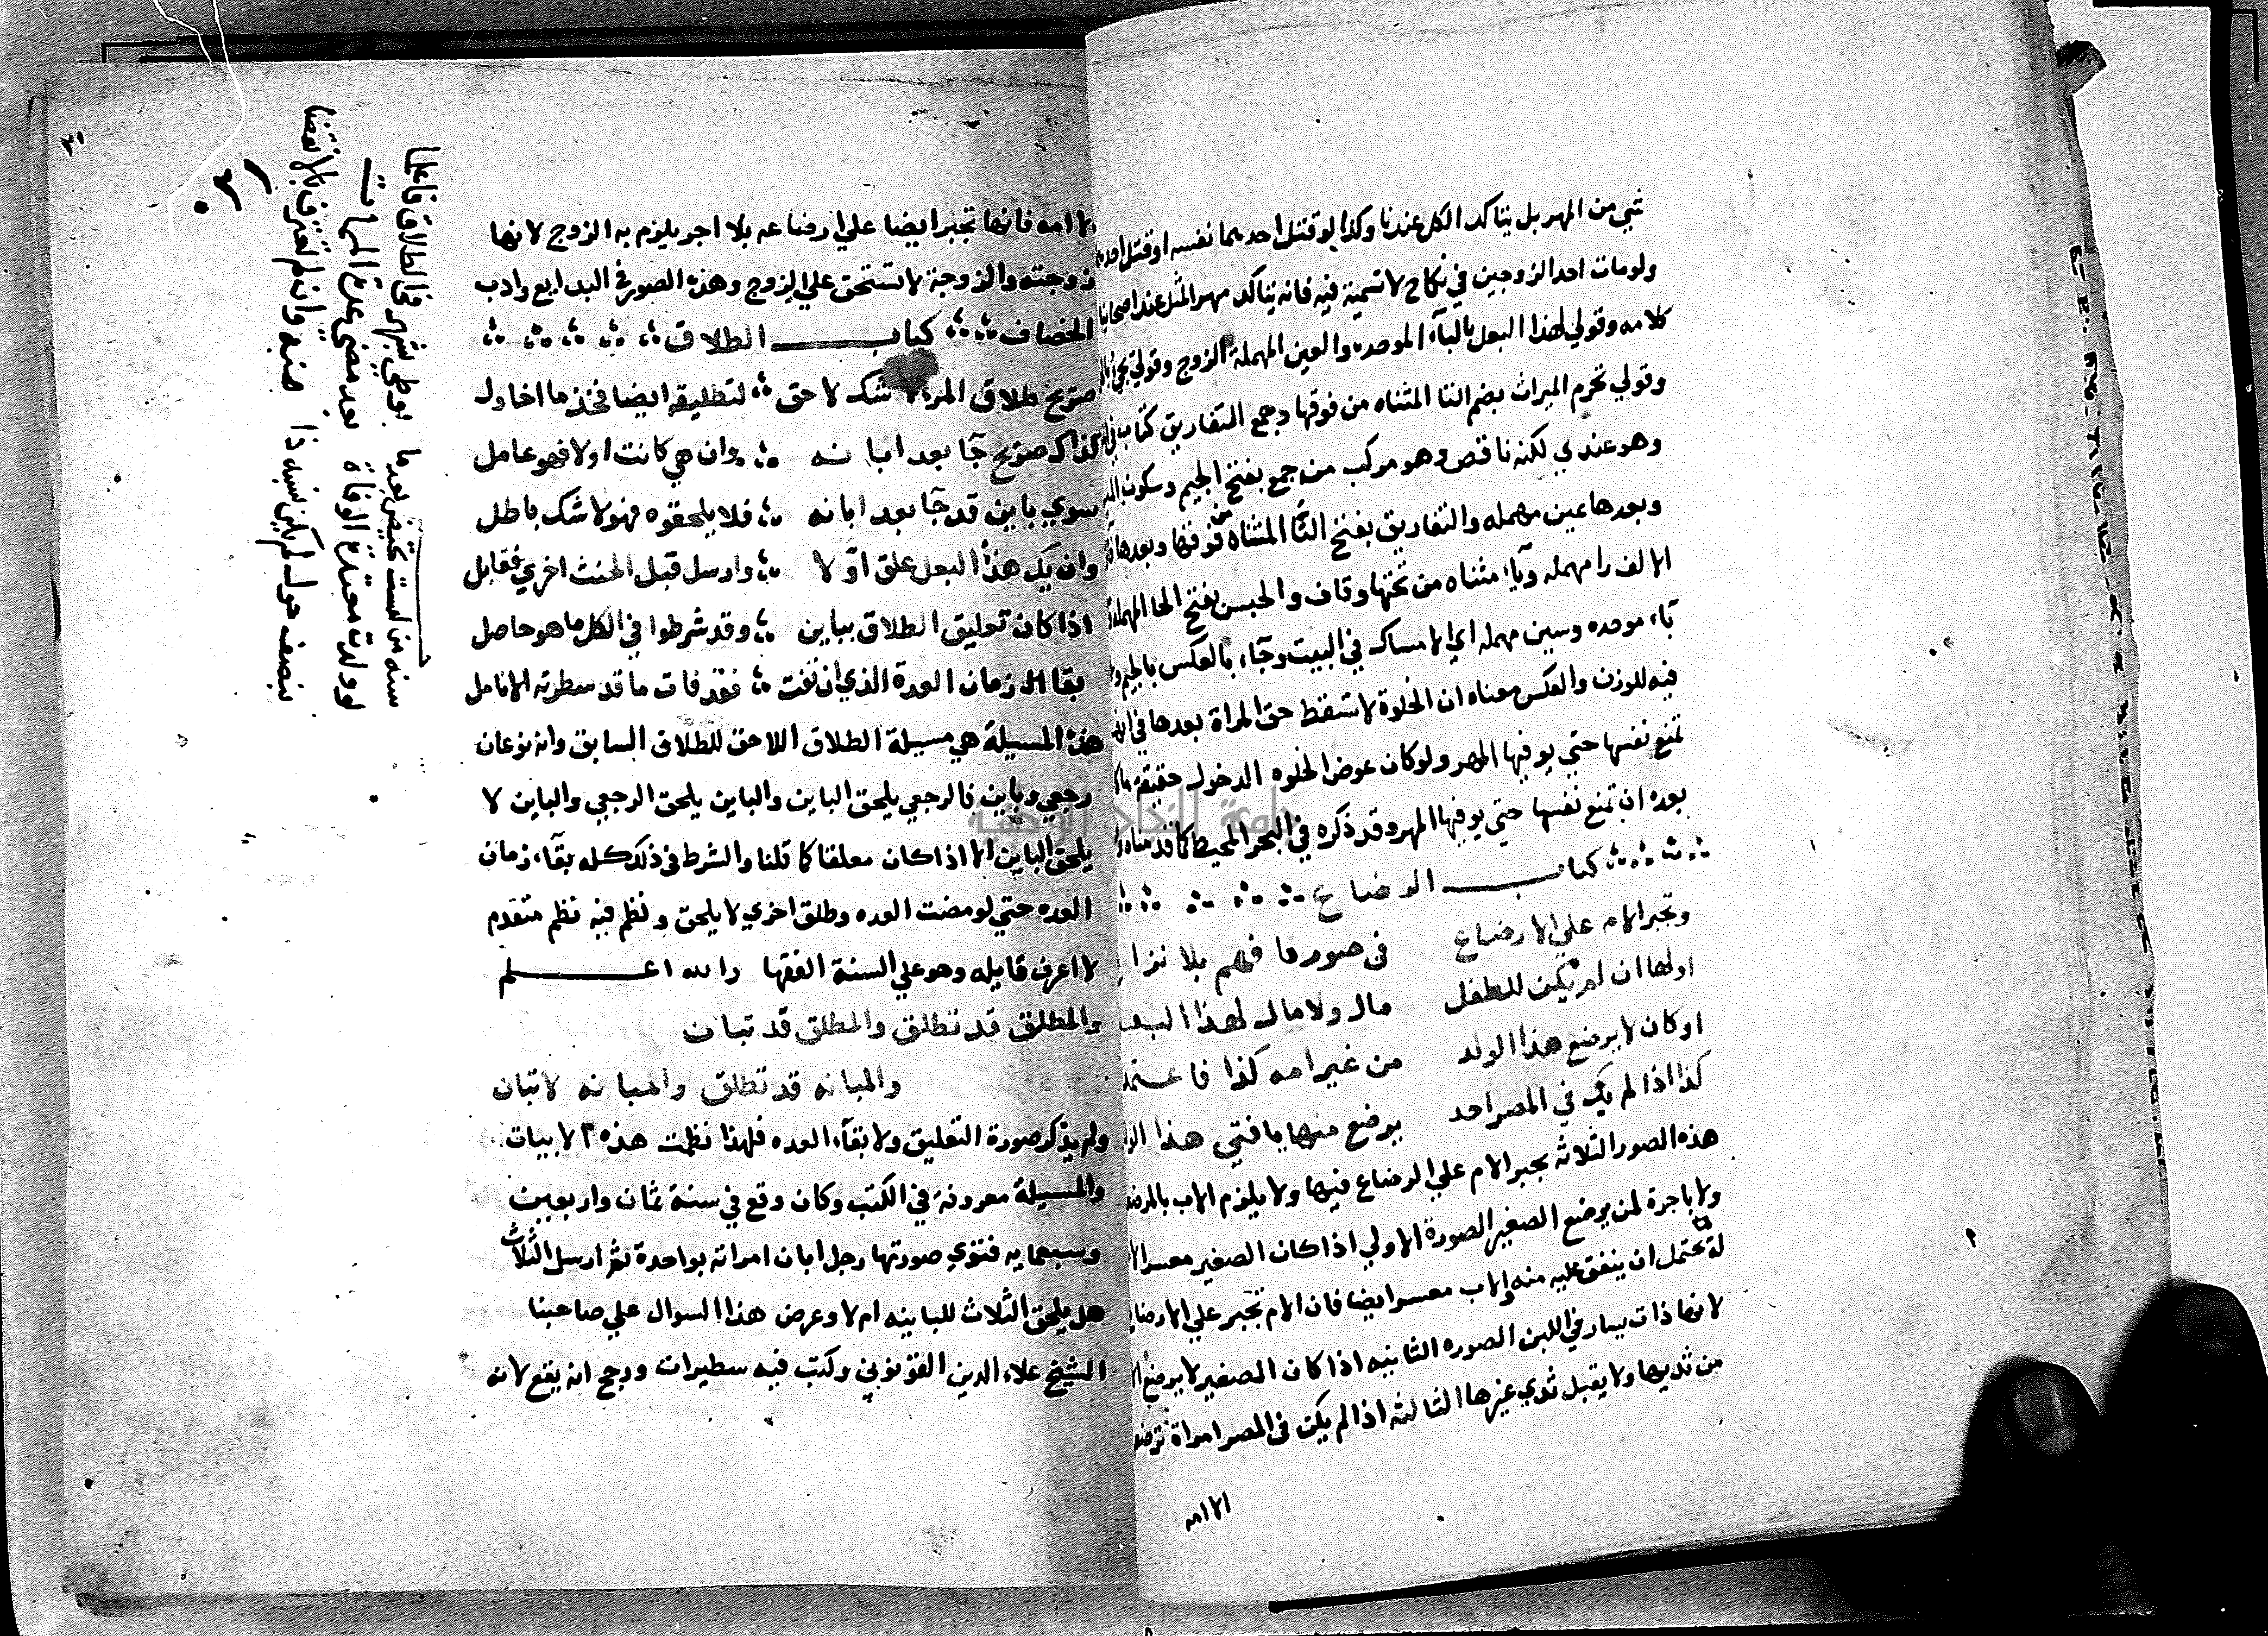 شي من المهر بل يتاكد الكل عندنا وكذا لو قتل احدهما نفسه او قتل احدهما
ولومات احد الزوجين في نكاح لا تسمية فيه فانه يتاكد مهر المثل عند اصحابنا
كلامه وقولي لهذا البعل بالبآء الموحده والعين المهملة الزوج وقولي
وقولي تحرم الميراث بضم التا المثناه من فوقها وجمع التفاريق كتاب
وهو عندي لكنه ناقص وهو مركب من جمع بفتح الجيم وسكون
وبعدها عين مهمله والتفاريق بفتح التا المثناه من فوقها وبعدها
الالف را مهمله ويآء مثناه من تحتها وقاف والحبس بفتح الحا المهمله
بآء موحده وسين مهمله اي الامساك في البيت وجآء بالعكس بالجيم
فيه للوزن والعكس معناه ان الخلوة لا تسقط حق المراة بعدها في ان
تمنع نفسها حتي يوفيها المهر ولو كان عوض الخلوه الدخول حقيقة
بعده ان تمنع نفسها حتي يوفيها المهر وقد ذكره في البحر المحيط كما قدمناه
كتاب الرضاع
وتجبر الام علي الارضاع في صور فافهم بلا نزاع
اولها ان لم يكن للطفل مال ولا مال لهذا البعل
او كان لا يرضع هذا الولد من غير امه كذا فاعتمد
كذا اذا لم يك في المصر احد يرضع منها يا فتي هذا
هذه الصور الثلاثه تجبر الام علي الرضاع فيها ولا يلزم الاب
ولا باجرة لمن يرضع الصغير الصورة الاولي اذا كان الصغير معسرا
لا يحتمل ان ينفق عليه منه والاب معسر ايضا فان الام تجبر علي الارضاع
لانها ذات يسار في اللبن الصوره الثانيه اذا كان الصغير لا يرضع الا
من ثديها ولا يقبل ثدي غيرها الثالثه اذا لم يكن في المصر امراة ترضعه
الا امه
الا امه فانها تجبر ايضا علي ارضاعه بلا اجر يلزم به الزوج لانها
زوجته والزوجة لا تستحق علي الزوج وهذه الصور في البدايع وادب
الخصاف كتاب الطلاق
صريح طلاق المرء لا شك لاحق لتطليقه ايضا فخذ ما احاول
كذاك صريح جآ بعد ابانه وان هي كانت اولا فهو عامل
سوي باين قد جآ بعد ابانه فلا يلحقوه فهو لا شك باطل
وان يك هذا البعل علق اولا وارسل قبل الحنث اخري فقابل
اذا كان تعليق الطلاق بباين وقد شرطوا في الكل ما هو حاصل
بقا زمان العدة الذي ان نفت فقد فات ما قد سطرته الانامل
هذه المسيلة هي مسيلة الطلاق اللاحق للطلاق السابق وانه نوعان
رجعي وباين فالرجعي يلحق الباين والباين يلحق الرجعي والباين لا
يلحق الباين الا اذا كان معلقا كما قلنا والشرط في ذلك كله بقآء زمان
العده حتي لو مضت العده وطلق اخري لا يلحق ونظم فيه نظم متقدم
لا اعرف قايله وهو علي السنة الفقها والله اعلم
والمطلق قد تطلق والمطلق قد تبان
والمبانه قد تطلق والمبانه لا تبان
ولم يذكر صورة التعليق ولا بقآء العده فلهذا نظمت هذه الابيات
والمسيلة معروفة في الكتب وكان وقع في سنة ثمان واربعين
وسبعمايه فتوي صورتها رجل ابان امراته بواحدة ثم ارسل الثلاث
هل يلحق الثلاث للباينه ام لا وعرض هذا السوال علي صاحبنا
الشيخ علاء الدين القونوني وكتب فيه سطيرات ورجح انه يقع لانه